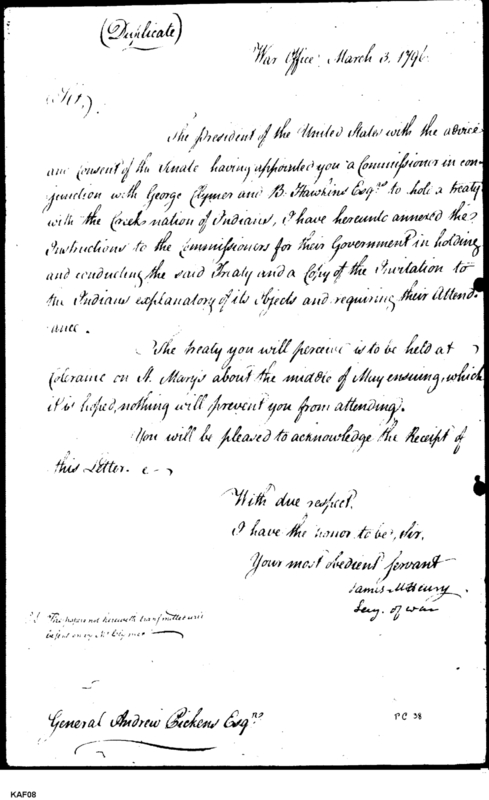 (Duplicate)
War Office March 3. 1796.
Sir,
The president of the United States with the advice
and consent of the Senate having appointed you a Commissioner in con-
junction with George Clymer and B. Hawkins Esqrs to hold a treaty
with the Creek nation of Indians, I have hereunto annexed the
Instructions to the Commissioners for their Government in holding
and conducting the said Treaty and a Copy of the Invitation to
the Indians explanatory of its objects and requiring their Attend-
ance.
The treaty you will perceive is to be held at
Coleraine on St. Marys about the middle of May ensuing, which
it is hoped, nothing will prevent you from attending.
You will be pleased to acknowledge the Receipt of
this Letter.
With due respect.
I have the honor to be, Sir,
Your most obedient servant
James McHenry.
Secy. of war
The papers not herewith transmitted will
be sent on by Mr Clymer
General Andrew Pickens Esqrs
PC 38
KAF08